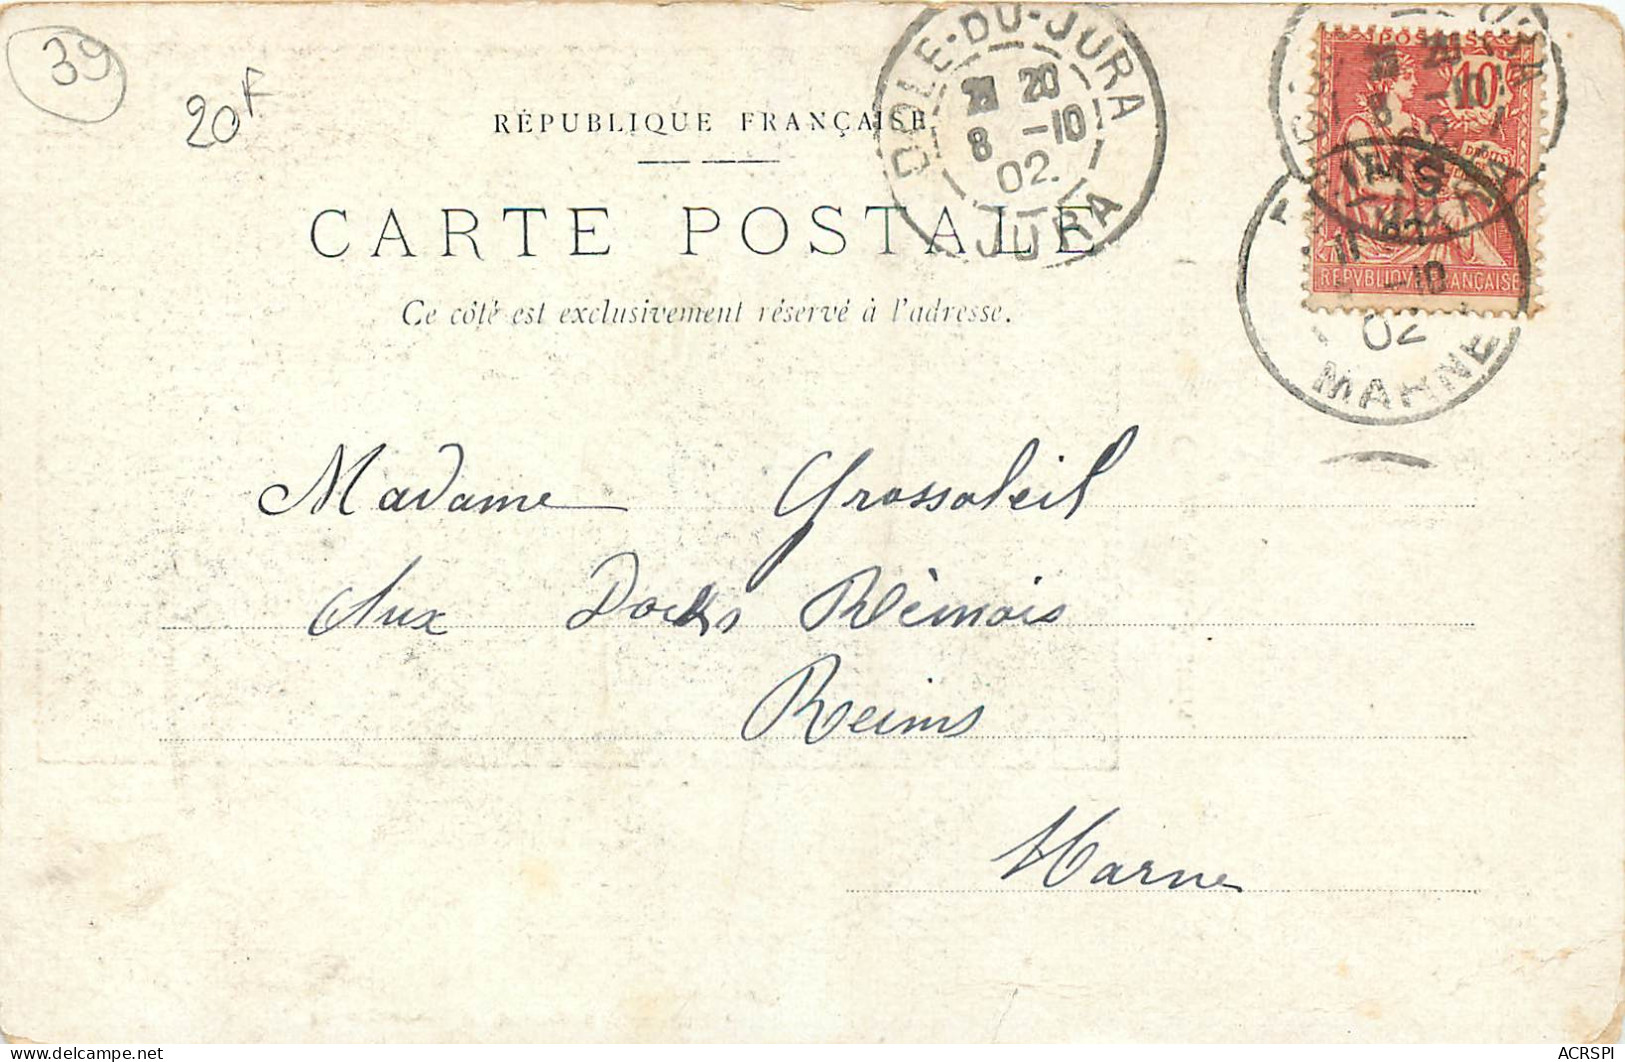 39
20F
RÉPUBLIQUE FRANÇAISE
CARTE POSTALE
Ce côté est exclusivement réservé à l'adresse.
DOLE-DU-JURA
20
8 -10
02
JURA
POSTES
10
REPVBLIQVE FRANÇAISE
-10
02
MARNE
Madame Grossoleil
Aux Docks Rèmois
Reims
Marne
ACRSPI